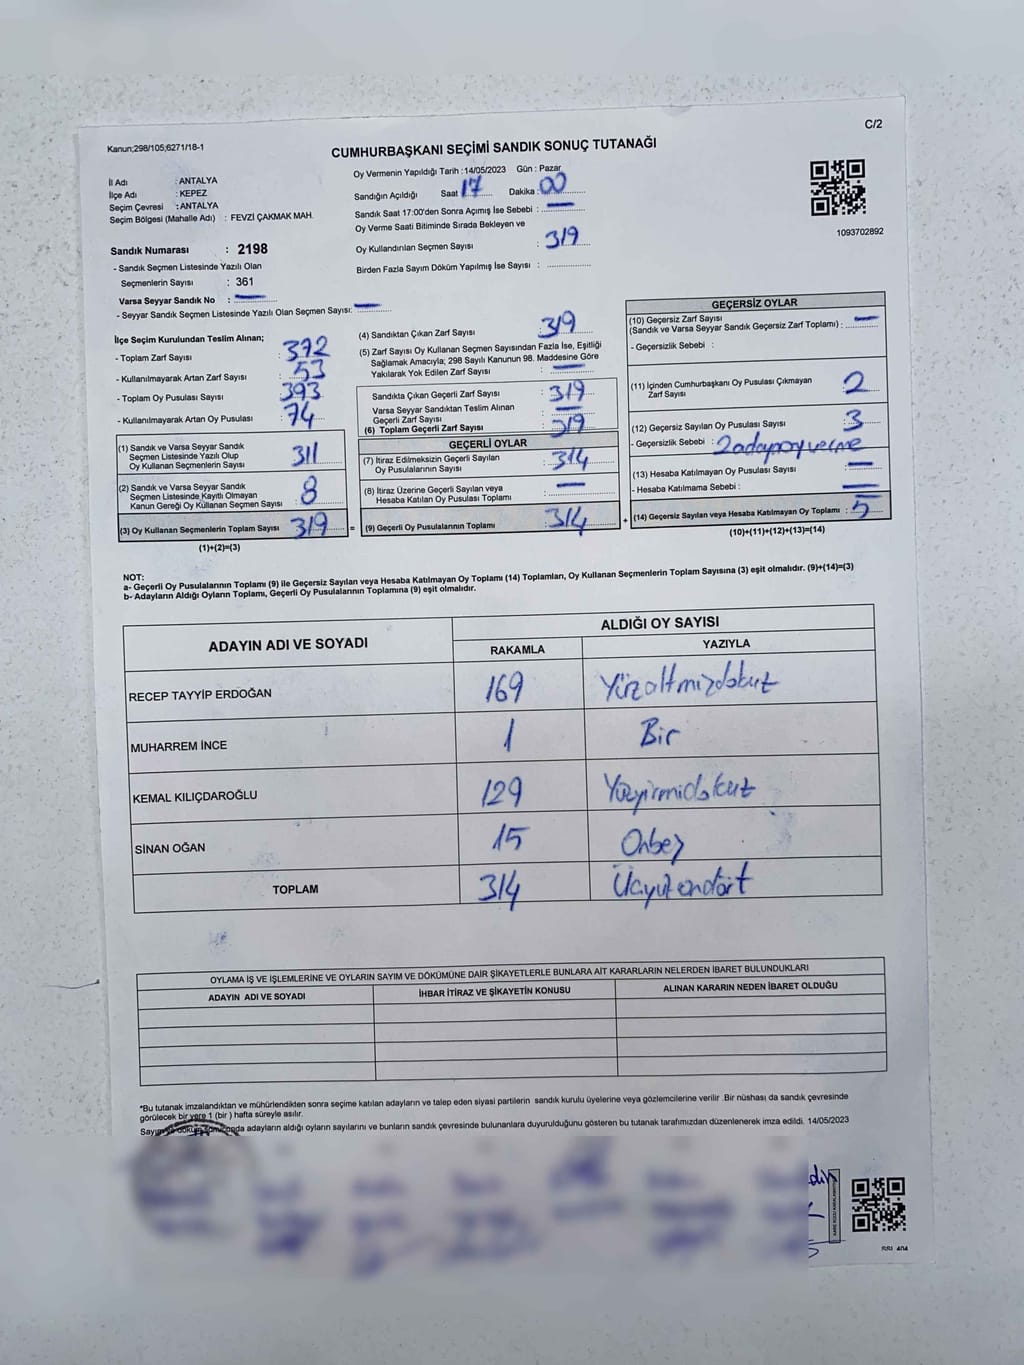 C/2
Kanun;298/105;6271/18-1
CUMHURBAŞKANI SEÇİMİ SANDIK SONUÇ TUTANAĞI
İl Adı : ANTALYA
İlçe Adı : KEPEZ
Seçim Çevresi : ANTALYA
Seçim Bölgesi (Mahalle Adı) : FEVZİ ÇAKMAK MAH.
Sandık Numarası : 2198
- Sandık Seçmen Listesinde Yazılı Olan
Seçmenlerin Sayısı : 361
Varsa Seyyar Sandık No : —
- Seyyar Sandık Seçmen Listesinde Yazılı Olan Seçmen Sayısı: —
Oy Vermenin Yapıldığı Tarih :14/05/2023 Gün : Pazar
Sandığın Açıldığı Saat 17 Dakika : 00
Sandık Saat 17:00'den Sonra Açımış İse Sebebi : —
Oy Verme Saati Bitiminde Sırada Bekleyen ve
Oy Kullandırılan Seçmen Sayısı : 319
Birden Fazla Sayım Döküm Yapılmış İse Sayısı :
1093702892
İlçe Seçim Kurulundan Teslim Alınan;
- Toplam Zarf Sayısı : 372
- Kullanılmayarak Artan Zarf Sayısı : 53
- Toplam Oy Pusulası Sayısı : 393
- Kullanılmayarak Artan Oy Pusulası : 74
(1) Sandık ve Varsa Seyyar Sandık
Seçmen Listesinde Yazılı Olup
Oy Kullanan Seçmenlerin Sayısı 311
(2) Sandık ve Varsa Seyyar Sandık
Seçmen Listesinde Kayıtlı Olmayan
Kanun Gereği Oy Kullanan Seçmen Sayısı 8
(3) Oy Kullanan Seçmenlerin Toplam Sayısı 319 =
(1)+(2)=(3)
(4) Sandıktan Çıkan Zarf Sayısı : 319
(5) Zarf Sayısı Oy Kullanan Seçmen Sayısından Fazla İse, Eşitliği
Sağlamak Amacıyla; 298 Sayılı Kanunun 98. Maddesine Göre
Yakılarak Yok Edilen Zarf Sayısı : —
Sandıkta Çıkan Geçerli Zarf Sayısı : 319
Varsa Seyyar Sandıktan Teslim Alınan
Geçerli Zarf Sayısı : —
(6) Toplam Geçerli Zarf Sayısı : 319
GEÇERLİ OYLAR
(7) İtiraz Edilmeksizin Geçerli Sayılan
Oy Pusulalarının Sayısı : 314
(8) İtiraz Üzerine Geçerli Sayılan veya
Hesaba Katılan Oy Pusulası Toplamı : —
(9) Geçerli Oy Pusulalarının Toplamı : 314 +
GEÇERSİZ OYLAR
(10) Geçersiz Zarf Sayısı
(Sandık ve Varsa Seyyar Sandık Geçersiz Zarf Toplamı) : —
- Geçersizlik Sebebi :
(11) İçinden Cumhurbaşkanı Oy Pusulası Çıkmayan
Zarf Sayısı : 2
(12) Geçersiz Sayılan Oy Pusulası Sayısı : 3
- Geçersizlik Sebebi : 2 aday oy verme
(13) Hesaba Katılmayan Oy Pusulası Sayısı : —
- Hesaba Katılmama Sebebi : —
(14) Geçersiz Sayılan veya Hesaba Katılmayan Oy Toplamı : 5
(10)+(11)+(12)+(13)=(14)
NOT:
a- Geçerli Oy Pusulalarının Toplamı (9) ile Geçersiz Sayılan veya Hesaba Katılmayan Oy Toplamı (14) Toplamları, Oy Kullanan Seçmenlerin Toplam Sayısına (3) eşit olmalıdır. (9)+(14)=(3)
b- Adayların Aldığı Oyların Toplamı, Geçerli Oy Pusulalarının Toplamına (9) eşit olmalıdır.
ADAYIN ADI VE SOYADI
ALDIĞI OY SAYISI
RAKAMLA YAZIYLA
RECEP TAYYİP ERDOĞAN 169 Yüzaltmışdokuz
MUHARREM İNCE 1 Bir
KEMAL KILIÇDAROĞLU 129 Yüzyirmidokuz
SİNAN OĞAN 15 Onbeş
TOPLAM 314 Üçyüzondört
OYLAMA İŞ VE İŞLEMLERİNE VE OYLARIN SAYIM VE DÖKÜMÜNE DAİR ŞİKAYETLERLE BUNLARA AİT KARARLARIN NELERDEN İBARET BULUNDUKLARI
ADAYIN ADI VE SOYADI İHBAR İTİRAZ VE ŞİKAYETİN KONUSU ALINAN KARARIN NEDEN İBARET OLDUĞU
*Bu tutanak imzalandıktan ve mühürlendikten sonra seçime katılan adayların ve talep eden siyasi partilerin sandık kurulu üyelerine veya gözlemcilerine verilir .Bir nüshası da sandık çevresinde
görülecek bir yere 1 (bir ) hafta süreyle asılır.
adayların aldığı oyların sayılarını ve bunların sandık çevresinde bulunanlara duyurulduğunu gösteren bu tutanak tarafımızdan düzenlenerek imza edildi. 14/05/2023